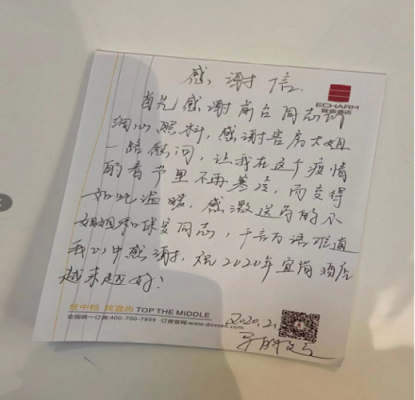 感谢信
ECHARM
宜尚酒店
首先感谢前台同志们
细心照料,感谢客房大姐
一路慰问,让我在这个疫情
的春节里不再寒冷,而变得
如此温暖,感激送药的小
姐姐和保安同志,千言万语难道
我心中感谢,祝2020年宜尚酒店
越来越好!
TOP THE MIDDLE
全国统一订房:400-700-7899 订房官网:www.dossen.com
2020.2.1